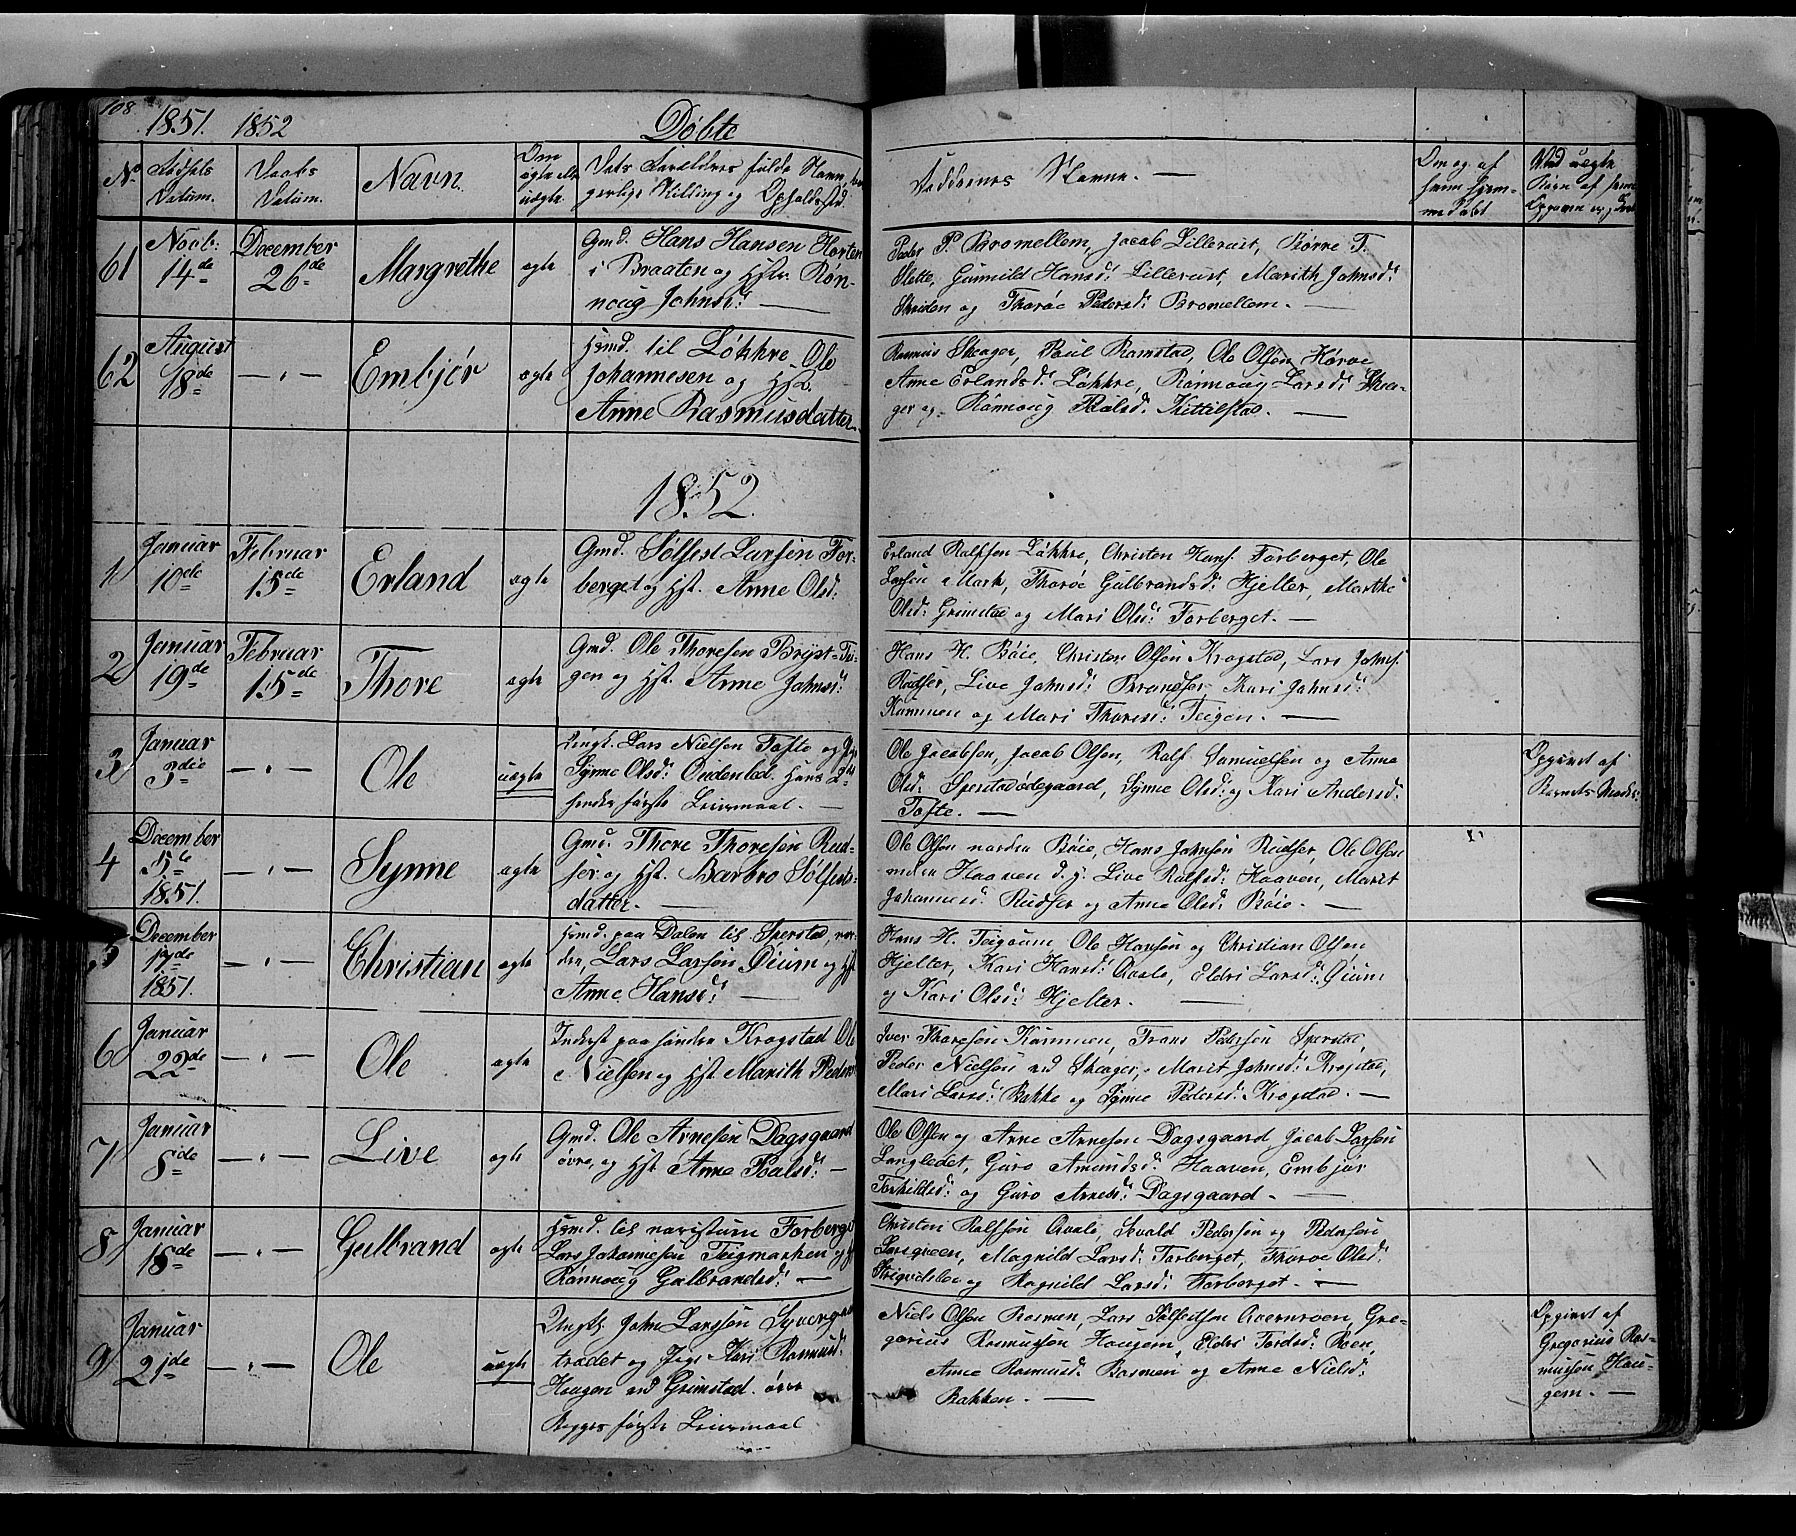 108
1851. 1852 Døbte
No Fødsels Datum. Daabs Datum. Navn. Om ægte eller uægte. Dets Forældres fulde Navn, borgerlige Stilling og Opholdssted. Faddernes Navne. — Om og af hvem hjemmedøbt Ved uægte Børn af hvem Opgiven er gjort
61 Novb: 14de December 26de Margrethe ægte
Gmd. Hans Hansen Horten
i Braaten og Hstr. Røn-
noug Johnsd: —
Peder P. Bromellem, Jacob Lillerust, Børre T.
Slette, Gunnild Hansd: Lillerust, Marith Johnsd:
Skriden og Thoroe Pedersd: Bromellem. —
62 August 18de — " — Embjør ægte
Hsmd. til Løkkre Ole
Johannesen og Hst.
Anne Rasmusdatter.
Rasmus Skeager, Poul Ramstad, Ole Olsen Horve
Anne Erlandsd: Løkkre, Rønnoug Larsd: Skea-
ger og Rønnoug Pålsd: Kittilstad. —
1852.
1 Januar 10de Februar 15de Erland ægte
Gmd. Sølfest Larsen For-
berget og Hst. Anne Olsd:
Erland Rolfsen Løkkre, Christen Hans. Forberget, Ole
Larsen Mork, Thoroe Gulbrandsd: Hjelter, Marthe
Olsd: Grimstad og Mari Olsd: Forberget. —
2 Januar 19de Februar 15de Thore ægte
Gmd. Ole Thoresen Brijst-Tei-
gen og Hst. Anne Johnsd:
Hans H. Bøie, Christen Olsen Krogstad, Lars Johns.
Rudser, Live Johnsd: Brandser, Kari Johnsd:
Rammen og Mari Thoresd: Teigen. —
3 Januar 3die — " — Ole uægte
Ungk. Lars Nielsen Tofte og Pige
Synne Olsd: Oudenlod. Hans 2det
hendes første Leiermaal. —
Ole Jacobsen, Jacob Olsen, Rolf Samuelsen og Anne
Olsd: Sperstadødegaard, Synne Olsd: og Kari Andersd:
Tofte. —
Opgivet af
Barnets Moder.
4 December 5te 1851. — " — Synne ægte
Gmd. Thore Thoresen Rud-
ser og Hst. Barbro Sølfests-
datter. —
Ole Olsen nordre Bøie, Hans Johnsen Rudser, Ole Olsen
nedre Haaven d. y. Live Rolfsd: Haaven, Marit
Johannesd: Rudser og Anne Olsd: Bøie. —
5 December 19de 1851. — " — Christian ægte
Hsmd. paa Dalen til Sperstad, nor-
dre, Lars Larsen Øium og Hst
Anne Hansd: —
Hans H. Teigoum, Ole Hansen og Christian Olsen
Hjelter, Kari Hansd: Qvale, Eldri Larsd: Øium
og Kari Olsd: Hjelter. —
6 Januar 22de — " — Ole ægte
Inderst paa søndre Krogstad Ole
Nielsen og Hst Marith Pedersd
Iver Thoresen Rammen, Frans Pedersen Sperstad,
Peder Nielsen ved Skeager, Marit Johnsd: Krogstad,
Mari Larsd: Bakke og Synne Pedersd: Krogstad. —
7 Januar 8de — " — Live ægte
Gmd. Ole Arnesen Dagsgaard
øvre, og Hst Anne Pålsd: —
Ole Olsen og Arne Arnesen Dagsgaard, Jacob Larsen
Langledet, Guro Amundsd: Haaven, Embjør
Torkildsd: og Guro Arnesd: Dagsgaard. —
8 Januar 18de — " — Gulbrand ægte
Hsmd. til Forberget
Lars Johannesen Teigmarken og Hst
Rønnoug Gulbrandsd: —
Christen Rolfsen Qvale, Sevald Pedersen og Pedersen
Larsgveen, Magnild Larsd: Forberget, Thoroe Olsd:
og Ragnild Larsd: Forberget. —
9 Januar 21de — " — Ole uægte
Ungk. John Larssen Syvergaard-
trædet og Pige Kari Rasmusd:
Haugen ved Grimstad. øvre
Begges første Leiermaal
Niels Olsen Rosmen, Lars Sølfestsen Qvernroen, Gre-
gorius Rasmussen Haugem, Eldri Tordsd: Roen,
Anne Rasmusd: Rosmen og Anne Nielsd:
Bakken. —
Opgivet af
Gregorius Ras-
mussen Hau-
gem. —